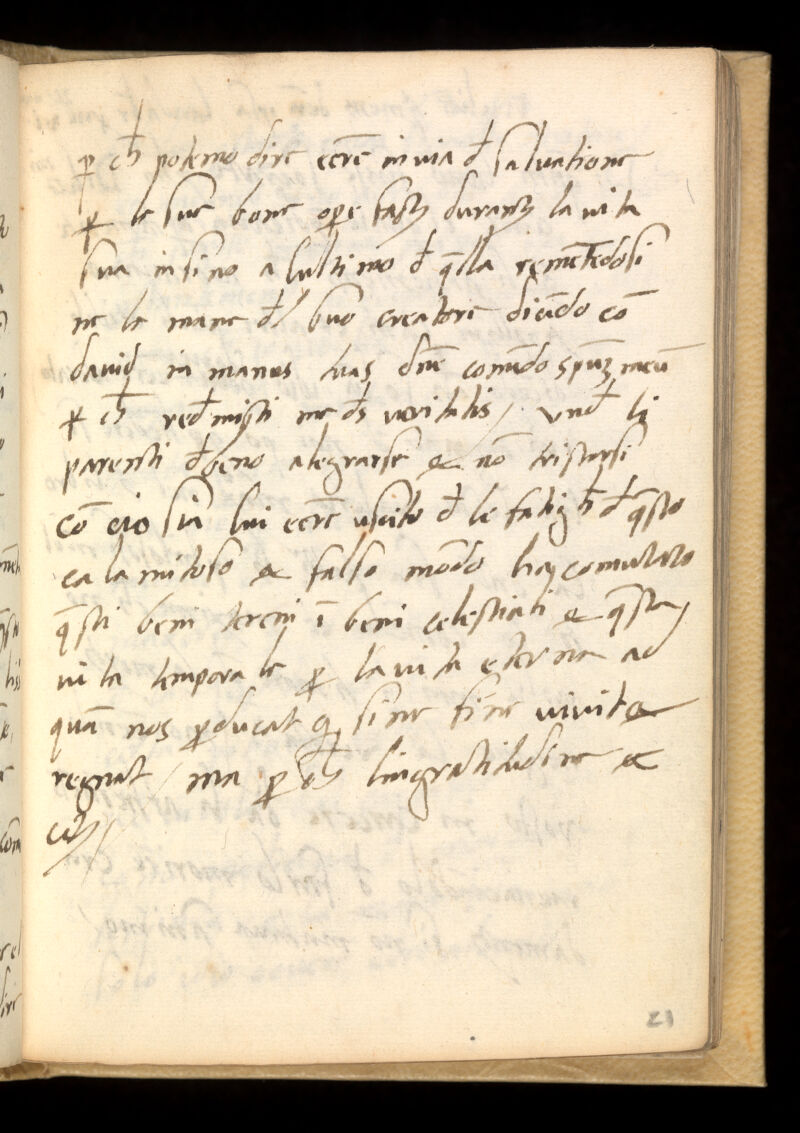 ꝑ ch̄ potemo dire eērē in via đ salvatione
ꝑ le sue bone oꝑe facty duranty la vita
sua insino a lultimo đ q̄lla remetēdosi
ne le mane đl suo creatore dicēdo cō
david in manus tuas dn̄e comēdo spūꝫ meū
ꝑ ch̄ ređmisti me đs veritatis / unđ li
parenti đbeno alegrarse & nō tristarsi
cō cio sia lui eērē uscito đ le fatigh̄ đ q̄sto
calamitoso & falso mōdo hay comutato
q̄sti beni tereni ī beni celestiali & q̄sta
vita temporale ꝑ la vita eterna ad
quā nos ꝑducat q̄ sine fine vivit &
regnat / ma ꝑ ch̄ lingratitudine &